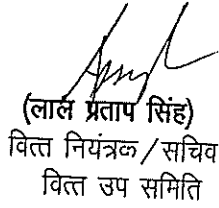 (लाल प्रताप सिंह)
वित्त नियंत्रक/सचिव
वित्त उप समिति